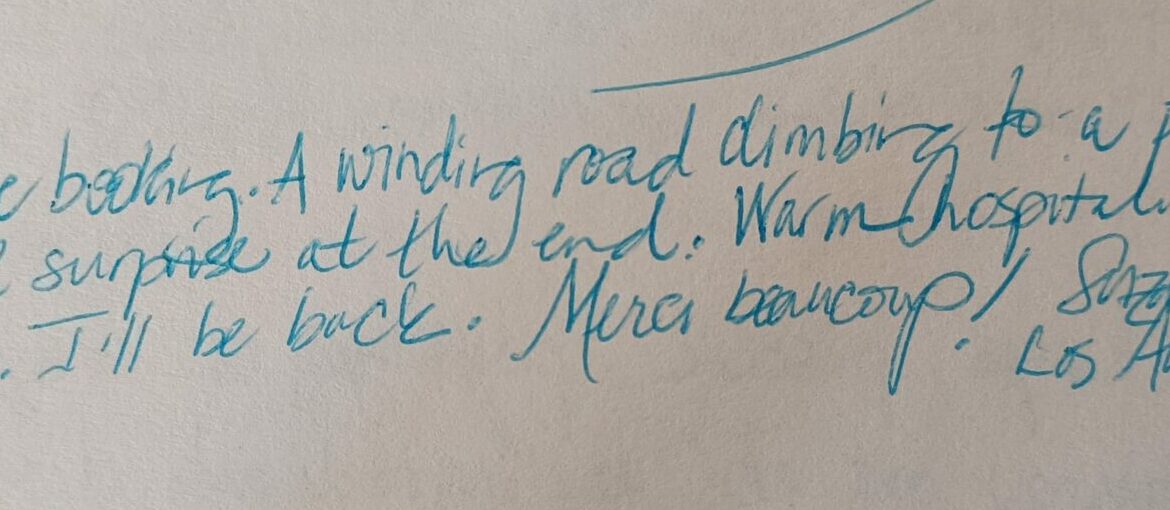 booking. A winding road climbing to a
surprise at the end. Warm hospital
I'll be back. Merci beaucoup!
Los